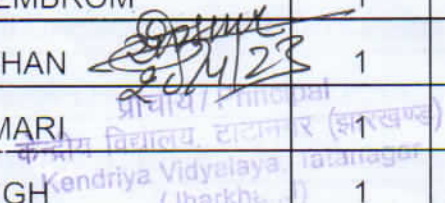 EMBROM 1
HAN 20/4/23 1
प्राचार्य / Principal
MARI 1
केन्द्रीय विद्यालय, टाटानगर (झारखण्ड)
Kendriya Vidyalaya, Tatanagar
GH 1
(Jharkhand)